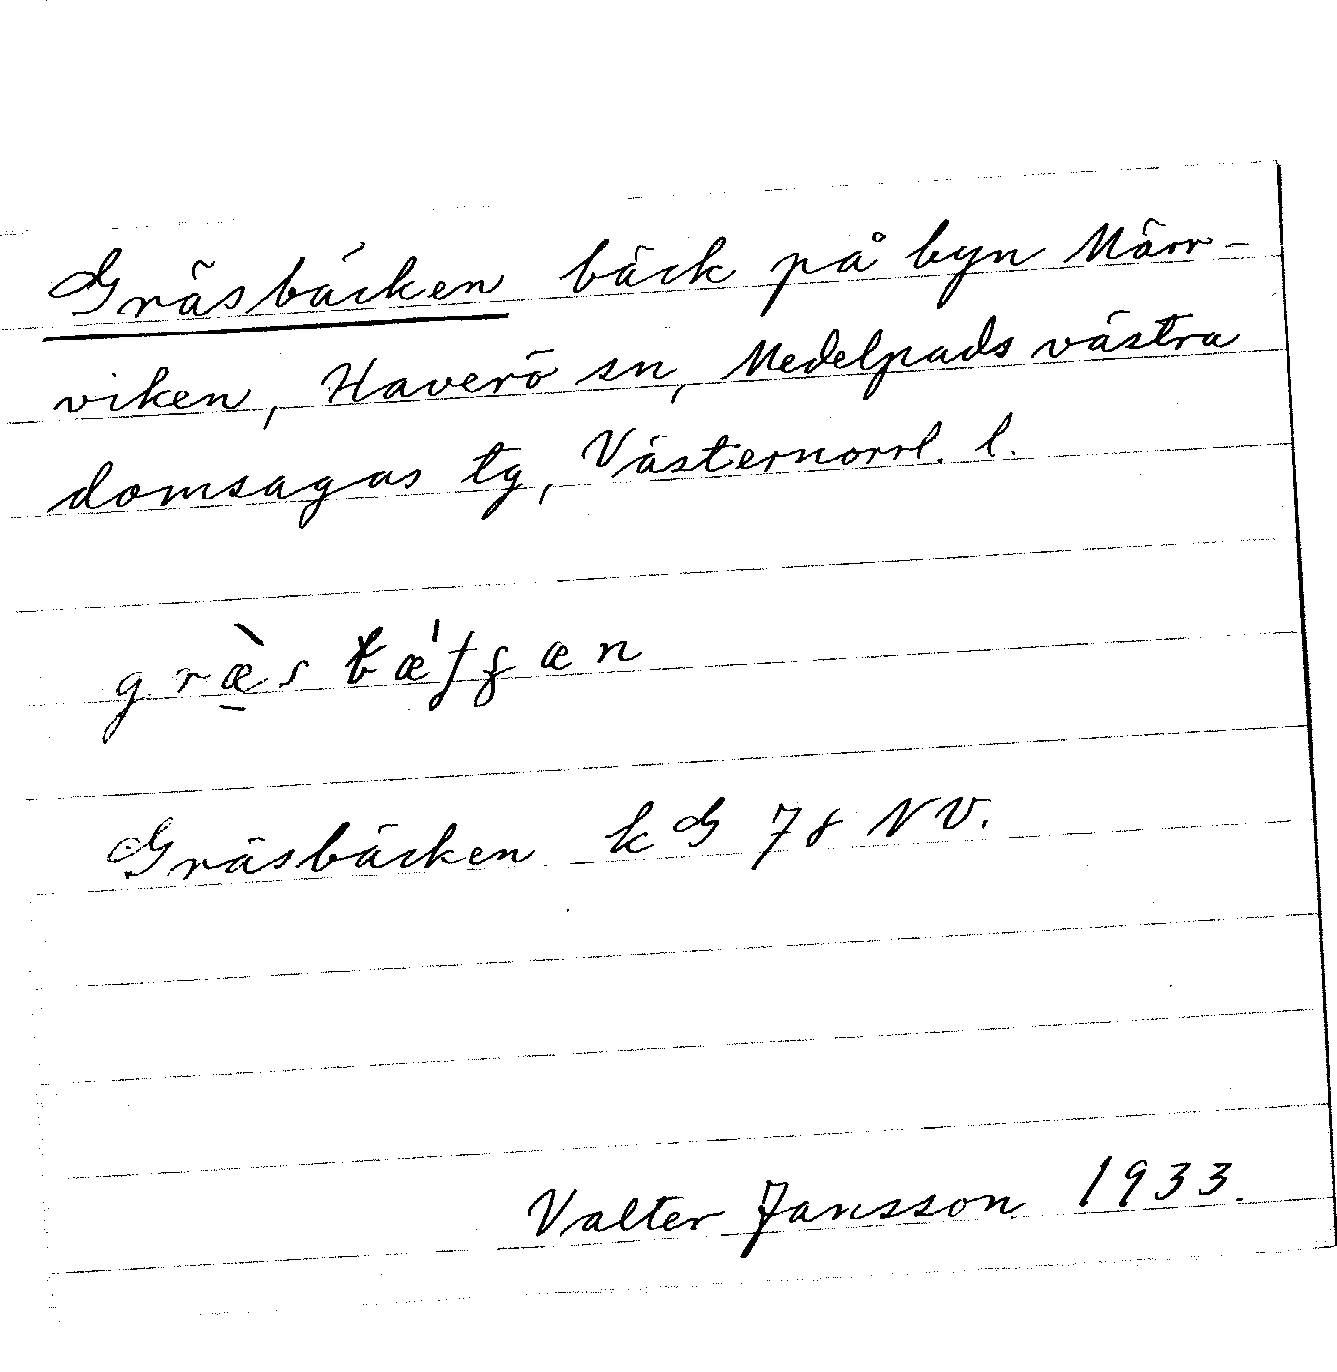 Gräsbäcken bäck på byn Märr-
viken, Haverö sn, Medelpads västra
domsagas tg, Västernorrl. l.
Gräsbäcken kG 78 NV.
Valter Jansson 1933.